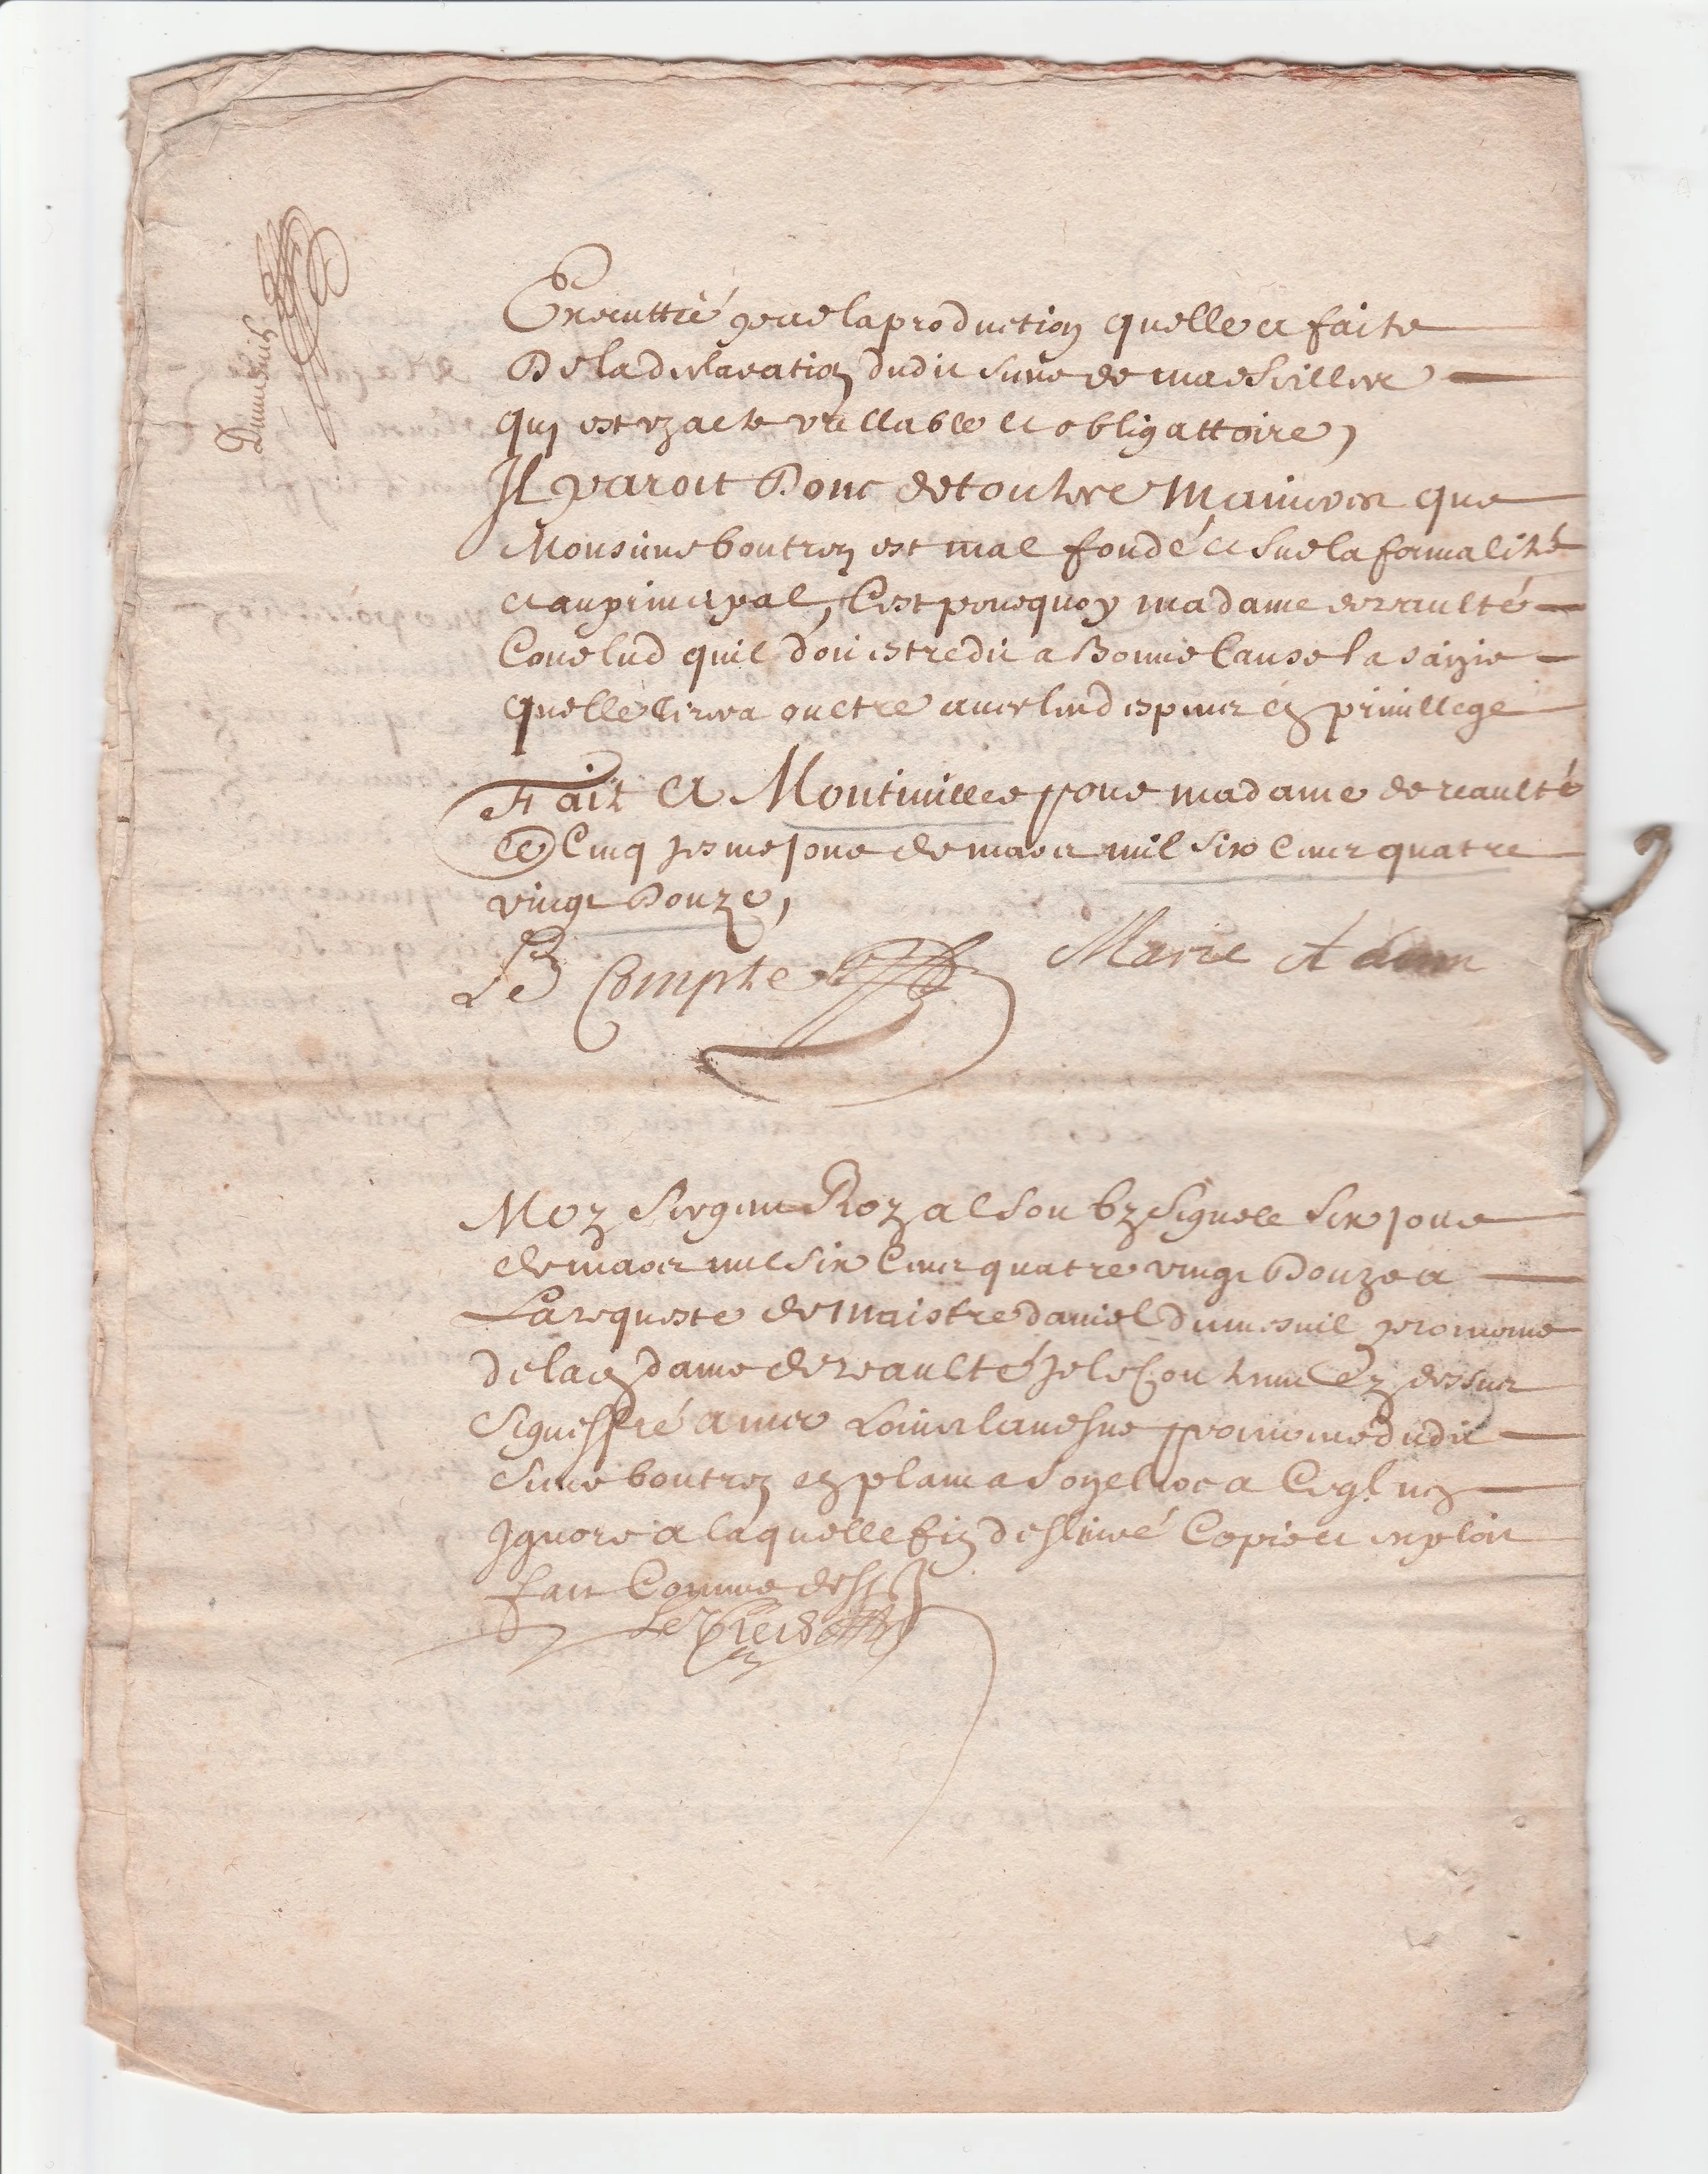 Dumesnil
Executtée par la production quelle a faite
De la declaration dudit sieur de marseilles
qui est un acte vallable et obligattoire,
Il paroit Donc de toutte Manieres que
Monsieur boutren est mal fondé et sur la formalité
et au principal, C'est pourquoy madame de reaulté
Conclud quil doit estre dit a Bonne Cause la saizie
quelle tirera oultre avec lesd espens et privillege
Fait A Montiuilles pour madame de reaulté
Ce Cinq jesme jour de mars mil six cents quatre
vingt Douze,
Le Compte Marie Adam
Moy sergent Royal soubz signé le six jour
de mars mil six cents quatre vingt Douze a
La requeste de Maistre daniel dumesnil procureur
de lad dame de reaulté je le contenu cy dessus
signiffié a me procureur dudit
sieur boutren
ignore a laquelle fin délivré Copie et exploit
fait Comme dess